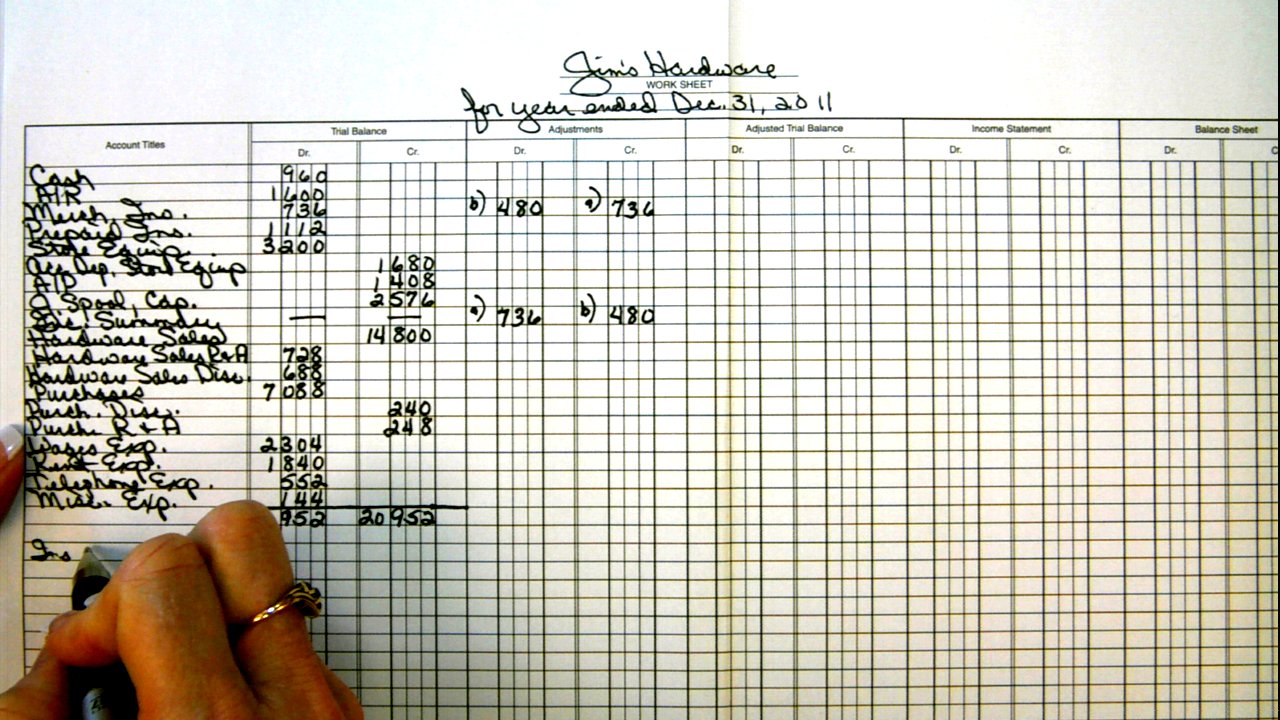 Jim's Hardware
WORK SHEET
for year ended Dec. 31, 2011
Account Titles Trial Balance Adjustments Adjusted Trial Balance Income Statement Balance Sheet
Dr. Cr. Dr. Cr. Dr. Cr. Dr. Cr. Dr. C
Cash 960
A/R 1600
Merch. Ins. 736 b) 480 a) 736
Prepaid Ins. 1112
Store Equip. 3200
Acc. Dep. Store Equip 1680
A/P 1408
J. Spool, Cap. 2576
Inc. Summary — — a) 736 b) 480
Hardware Sales 14800
Hardware Sales R+A 728
Hardware Sales Disc. 688
Purchases 7088
Purch. Disc. 240
Purch. R + A 248
Wages Exp. 2304
Rent Exp. 1840
Telephone Exp. 552
Misc. Exp. 144
952 20952
Ins